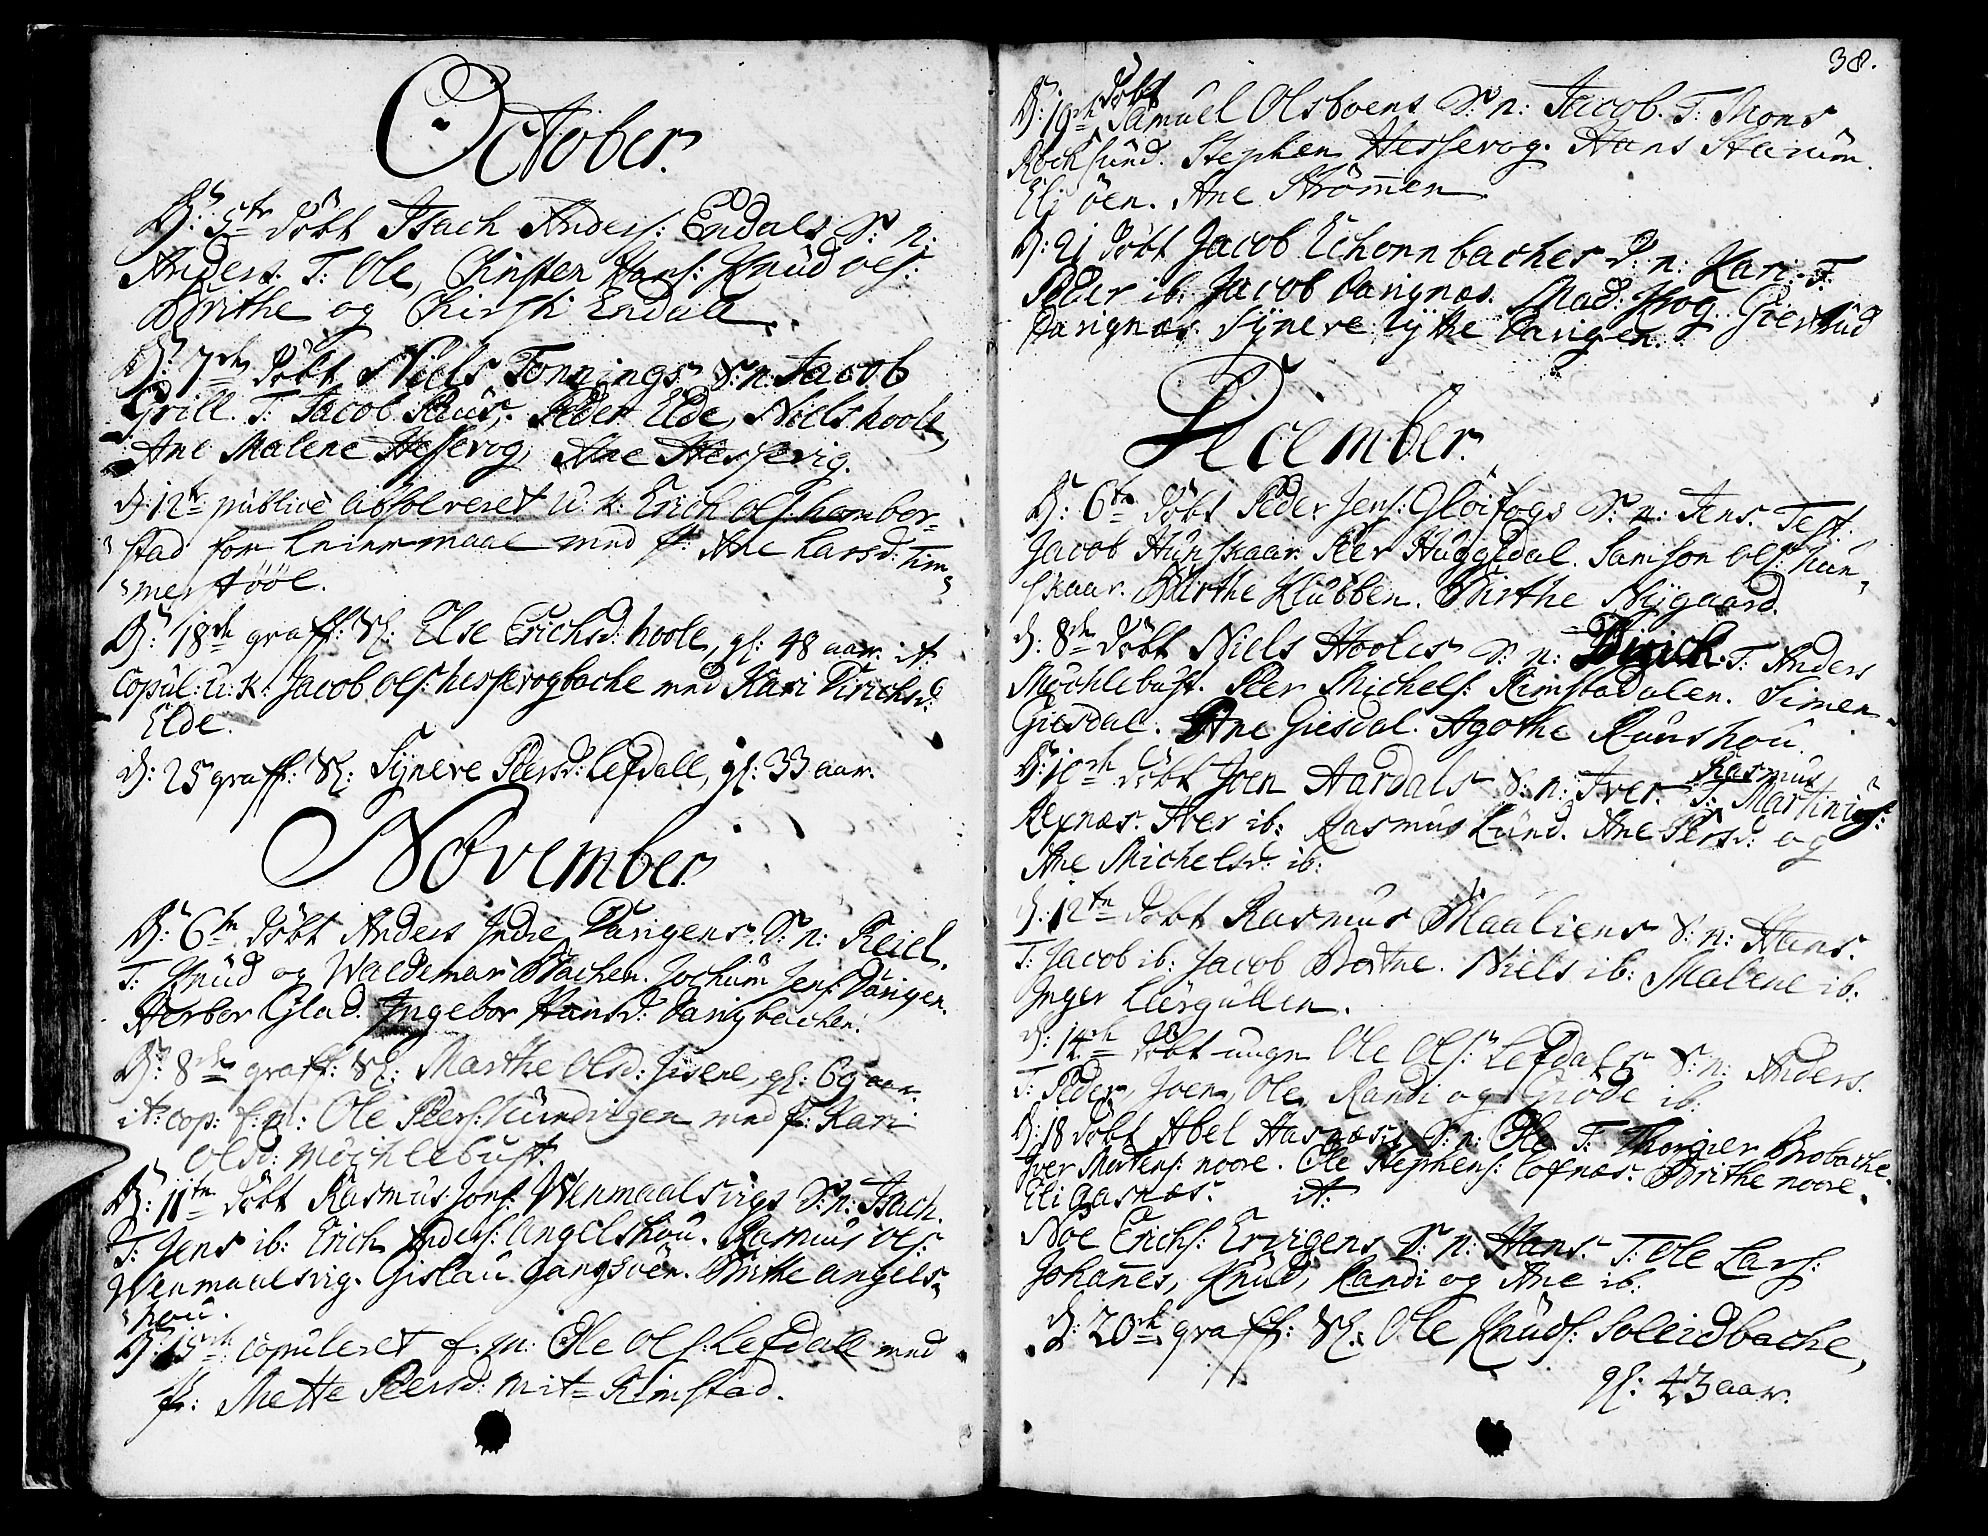 October.
D: 5te döbt Isach Anders: Endals S: n:
Anders. T: Ole, Christen Hans: Knud ols:
Brithe og Chirsti Endall.
D: 7de döbt Niels Tonnings S: n: Jacob
Grill. T: Jacob Paus, Peder Elde, Niels hoole,
Ane Malene Hessevog, Ane Hessevig.
d: 12te publice absolveret u: k: Erich ols: hombor-
stad for Leiermaal med f: Ane Larsd: Tim-
mer tööl.
D: 18de graff: Sl: Else Erichsd: hoole, gl: 48 aar. it:
Copul: u: k: Jacob ols: hessevogbache med Kari Dirichsd:
Elde.
d: 25 graff: Sl: Syneve Peersd: Lefdall, gl: 33 aar.
November.
D: 6te döbt Anders Indre Vaagens S: n: Reiel.
T: Knud og Waldemar Bachen. Jochum Jens: Vaagen.
Herbor Glad. Ingebor Hansd: Vaagbachen.
D: 8de graff: Sl: Marthe Olsd: gl: 69 aar.
it: cop: f: m: Ole Peers: Lundvigen med f: Kari
Olsd: Möchlebust.
D: 11te döbt Rasmus Jons: Wenmaalsvigs S: n: Isach.
T: Jens ib: Erich Anders: Angelshou. Rasmus ols:
Wenmaalsvig. Gislau Gangsöen. Brithe angels-
hou.
D: 15de copuleret f: m: Ole Ols: Lefdall med
f: Mette Peersd: Mit= Rimstad.
38.
D: 19de döbt Samuel Olsboens S: n: Jacob. T: Mons
Rochsund. Stephen Hessevog. Hans Starum
Eli öen. Ane Strömmen.
D: 21 döbt Jacob Echornbaches d: n: Kari. T:
Peder ib: Jacob Vaagnæs. Mad: Krog. Giertrud
Vaagnæs. Syneve lytte Vaagen.
December.
D: 6te döbt Peder Jens: Glöifogs S: n: Jens. Test.
Jacob Hunskaar. Peer Huggedal. Samson ols: hun-
skaar. Birthe Klubben. Birthe Nygaard.
d: 8de döbt Niels Hooles S: n: Dirich. T: Anders
Möchlebust. Peer Michels: Rimstadalen. Simen
Giesdal. Ane Giesdal. Agothe Raushou.
D: 10de döbt Joen Aardals S: n: Iver. T: Rasmus Martinus:
Refnæs. Iver ib: Rasmus Lund. Ane Peersd: og
Ane Michelsd: ib:
D: 12te döbt Rasmus Maaliens S: n: Hans.
T: Jacob ib: Jacob Brathe. Niels ib: Malene ib:
Inger Leergullen.
D: 14de döbt unge Ole Ols: Lefdals S: n: Anders.
T: Peder, Joen, Ole, Randi og Gröde ib:
D: 18 döbt Abel Aasnæs: S: n: Ole T: Thorgier Brobache.
Iver Mortens: noore. Ole Stephens: Lofnæs. Brithe noore.
Eli Aasnæs. it:
Noe Erichs: Ervigens S: n: Hans. T: Ole Lars:
Johannes, Knud, Randi og Ane ib:
D: 20de graff: Sl: Ole Knuds: Solleidbache,
gl: 43 aar.